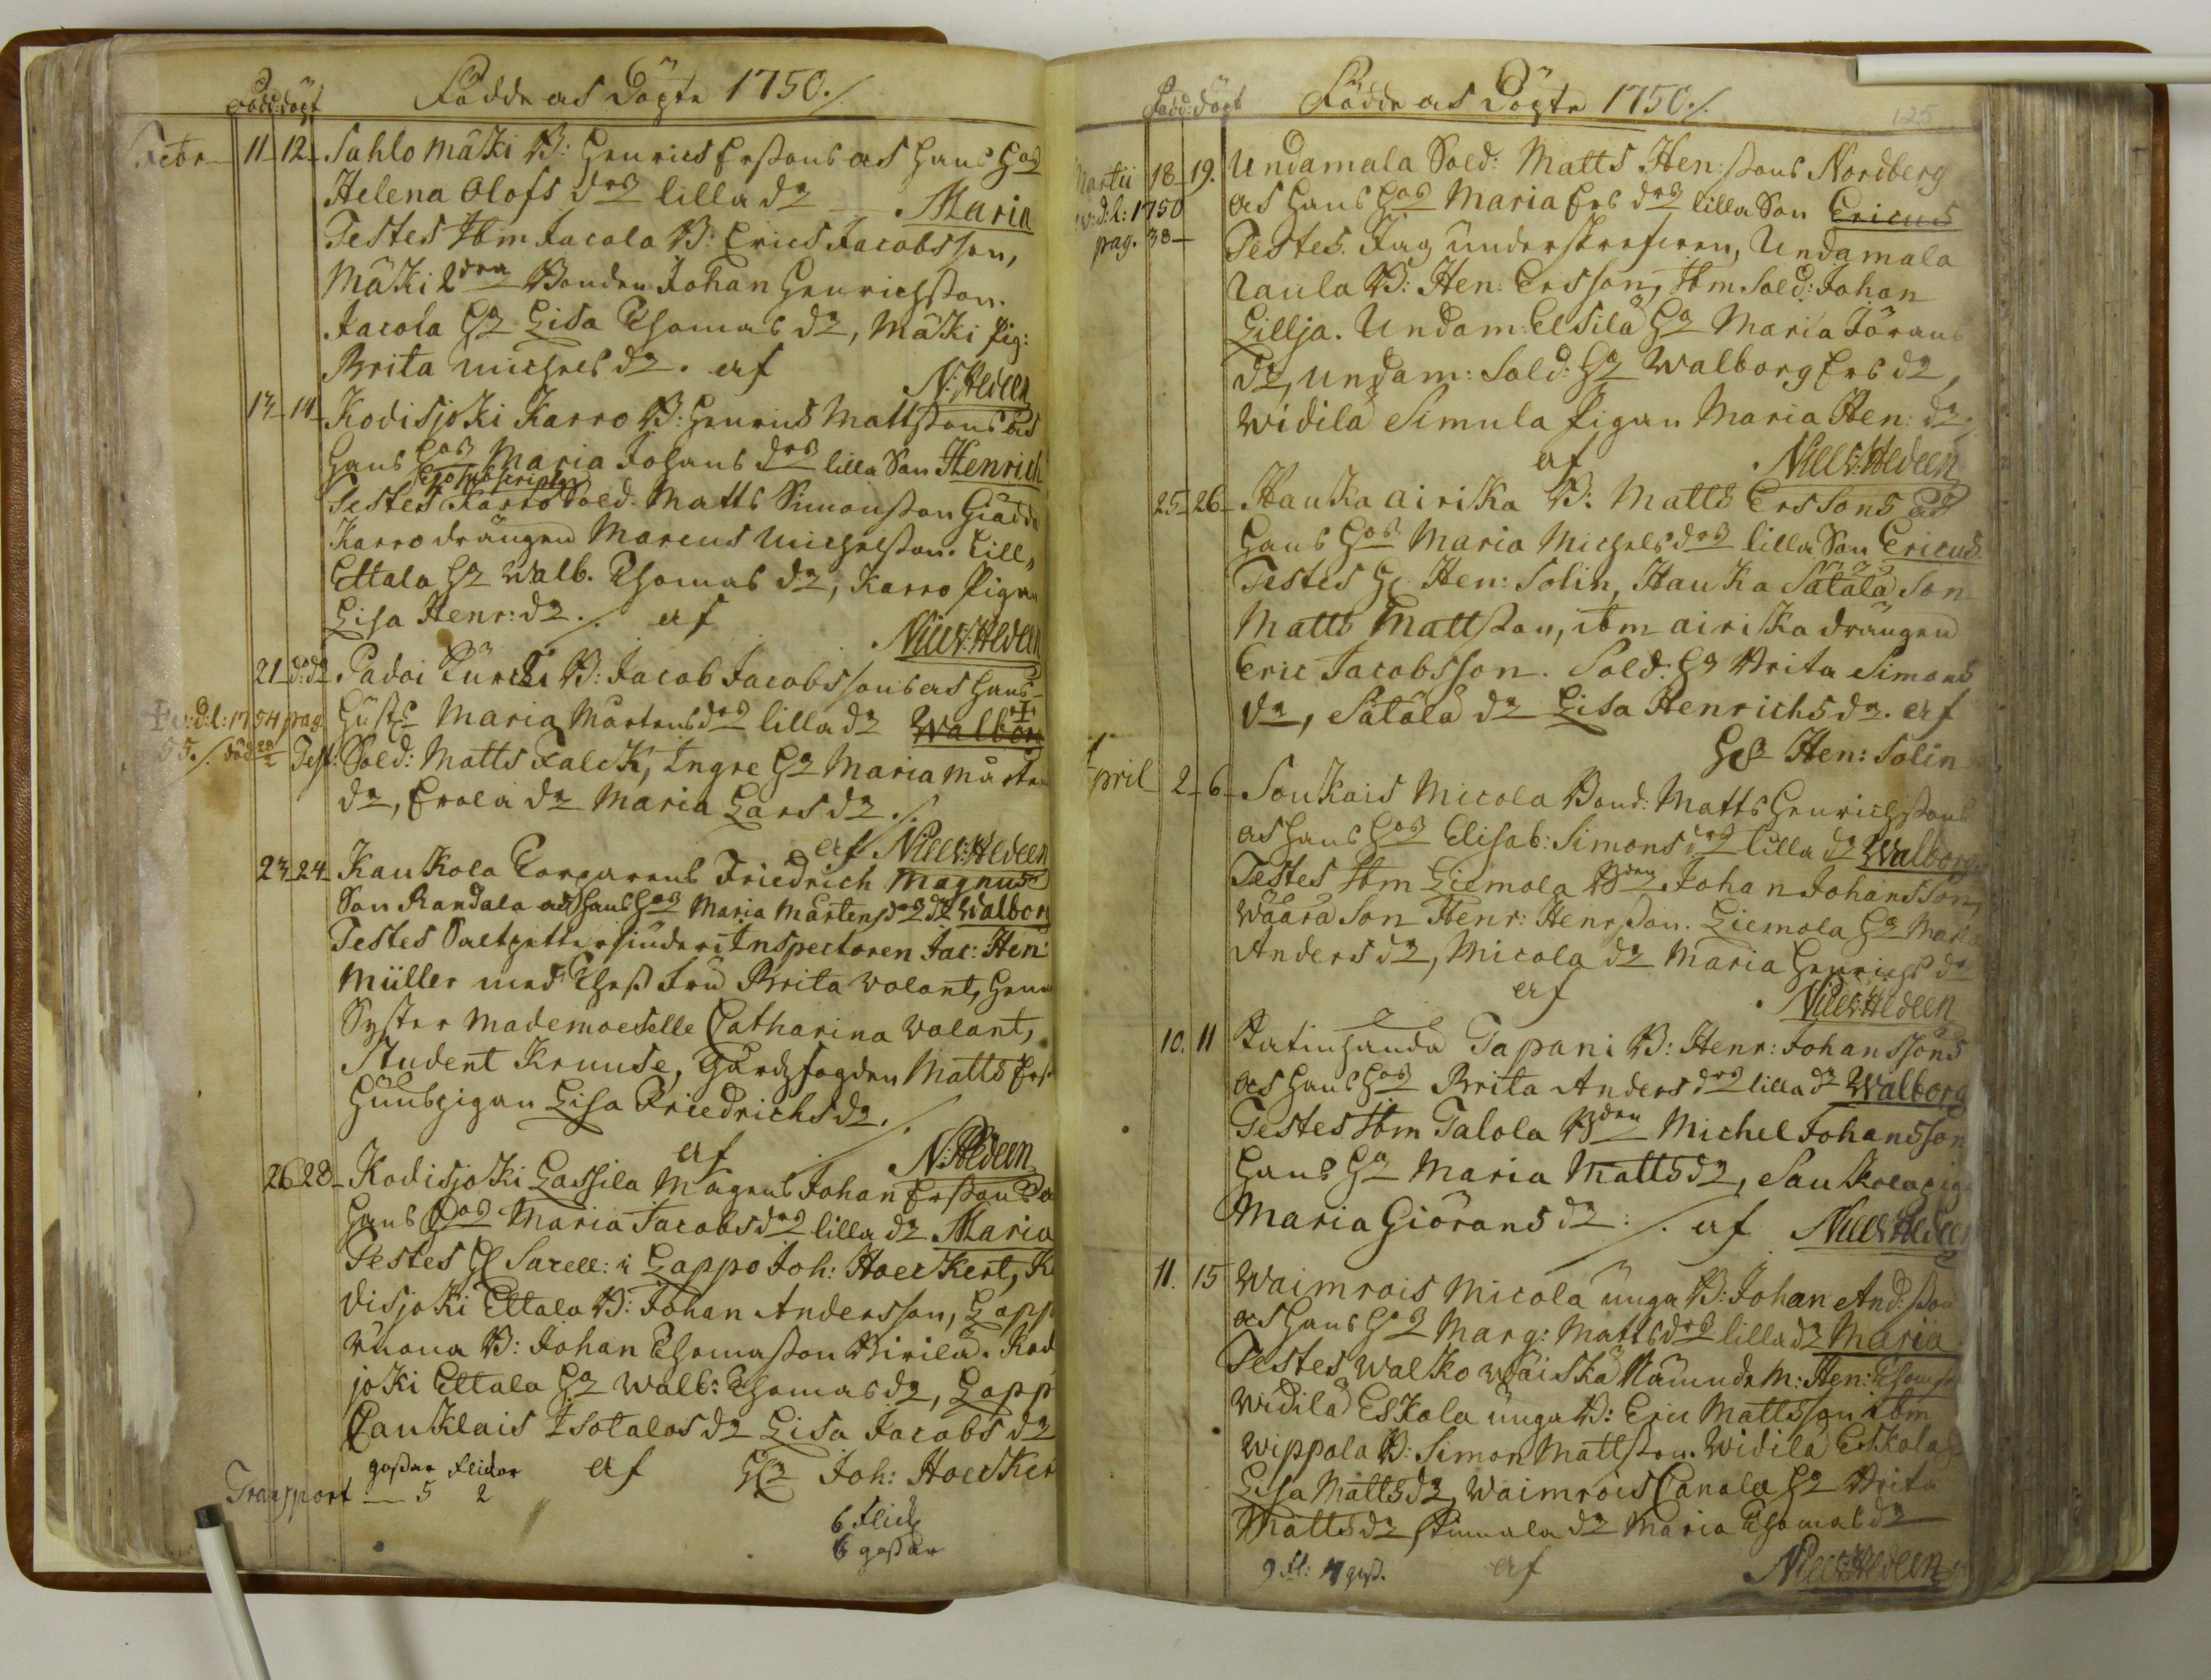 Född: döpt Födde as Döpte 1750./.
Febr 11 12 Sahlo Mäki B: Henrics Ersons as hans H:os
Helena Olofs d:rs lilla d:r Maria
Testes Ibm Jacola B: Erics Jacobsson,
Mäki Bonden Johan Henrichsson.
Jacola H:a Lisa Thomas d:r, Mäki Pig:
Brita Michels d:r. af N: Aldeen
13 14 Kodisjoki Karro B: Henrics Mattssons as
hans H:os Maria Johans d:rs lilla Son Henrich
Ego subscriptus
Testes Karro Sold. Matts Simonsson Giädda
Karro drängen Marcus Michelsson. Lill,
Ettala H:a Walb. Thomas d:r, Karro Pigan
Lisa Henr: d:r ./. af
Niels: Aldeen
21 d:o d:o Padoi B: Jacob Jacobssons as hans
v: d: l: 1754 pag. Hust: Maria Mårtens d:rs lilla d:r Walbor
55./. Test: Sold: Matts Falck, Ingre H:a Maria Mårtens
d:r, Erola d:r Maria Lars d:r ./.
af Niels: Aldeen
23 24 Kaukola Torparens Friedrich Magnus
Son Randala as hans H:os Maria Mårtens d:rs d:r Walbor
Testes Inspectoren Jac: Hen:
Müller med Thess Fru Brita Volant, hennes
Syster Mademoeselle Catharina Volant,
Student Kruuse, Gårdzfogden Matts Ers
Huuspigan Lisa Friedrichs d:r.
af N: Aldeen
26 28 Kodisjoki Lassila Mågens Johan Ersons
hans H:os Maria Jacobs d:rs lilla d:r Maria
Testes Sacell: i Lappo Joh: Hoeckert, Ko
disjoki Ettala B: Johan Andersson, Lapp
ruona B: Johan Thomasson Pirilä. Kod
joki Ettala H:a Walb: Thomas d:r, Lapp
Cauklais Isotalos d:r Lisa Jacobs d:r
gossar flickor af Joh: Hoecker
Transport 5 2
6 flick
6 gossar
Född: döpt Födde as Döpte 1750./. 125
Martii 18 19. Undamala Sold: Matts Hen:ssons Nordberg
v: d: l: 1750 as hans H:os Maria Ers d:rs lilla Son Ericus
pag. 38 Testes. Jag underskrefven, Undamala
Uaula B: Hen: Ersson, Ibm Sold: Johan
Lillja. Undam: Elsilä H:a Maria Jörans
d:r, Undam: Sold: H:a Walborg Ers d:r,
Widilä Simula Pigan Maria Hen: d:r
af Niels: Aldeen
25 26 Hauka airika B: Matts Erssons as
hans H:os Maria Michels d:rs lilla Son Ericus
Testes Hen: Solin, Hauka Sätälä Son
Matts Mattsson, ibm airika drängen
Eric Jacobsson. Sold: H:a Brita Simons
d:r, Sätälä d:r Lisa Henrichs d:r. af
Hen: Solin
April 2 6 Soukais Micola Bond: Matts Henrichssons
as hans H:os Elisab: Simons d:rs lilla d:r Walborg
Testes Ibm Liemola B:den Johan Johansson,
Wäärä Son Henr: Henrsson. Liemola H:a Maria
Anders d:r, Micola d:r Maria Henrichs d:r
af Niels: Aldeen
10. 11 Tapani B: Henr: Johanssons
as hans H:os Brita Anders d:rs lilla d:r Walborg
Testes Ibm Talola B:den Michel Johansson
hans H:a Maria Matts d:r, Saukola pig
Maria Giörans d:r ./. af Niels: Aldeen
11. 15 Waimrois Micola unga B: Johan And:sson
as hans H:os Marg: Matts d:rs lilla d:r Maria
Testes Walko Wäiskä Nämnde M: Hen: Thomsson
Widilä Eskola unga B: Eric Mattsson ibm
Wippola B: Simon Mattsson. Widilä Eskola H:a
Lisa Matts d:r, Waimrois Canala H:a Brita
Matts d:r, d:r Maria Thomas d:r
9 fl: 7 goss. af Niels: Aldeen